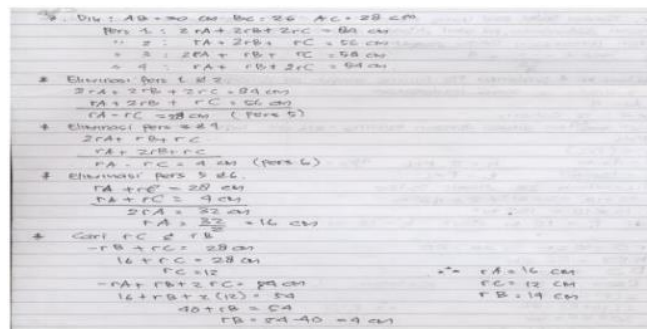 Dik : AB = 30 cm BC = 26 AC = 28 cm
Pers 1 : 2rA + 2rB + 2rC = 84 cm
" 2 : rA + 2rB + rC = 56 cm
" 3 : 2rA + rB + rC = 58 cm
" 4 : rA + rB + 2rC = 54 cm
* Eliminasi Pers 1 & 2
2rA + 2rB + 2rC = 84 cm
rA + 2rB + rC = 56 cm
rA + rC = 28 cm (Pers 5)
* Eliminasi Pers
2rA + rB + rC
rA + rB + rC
rA - rC = 4 cm (Pers 6)
* Eliminasi Pers 5 & 6
rA + rC = 28 cm
rA + rC = 4 cm
2rA = 32 cm
rA = 32/2 = 16 cm
* Cari rC & rB
- rB + rC = 28 cm
16 + rC = 28 cm
rC = 12
- rA + rB + 2rC = 54 cm
16 + rB + 2(12) = 54
40 + rB = 54
rB = 54 - 40 = 4 cm
rA = 16 cm
rC = 12 cm
rB = 14 cm